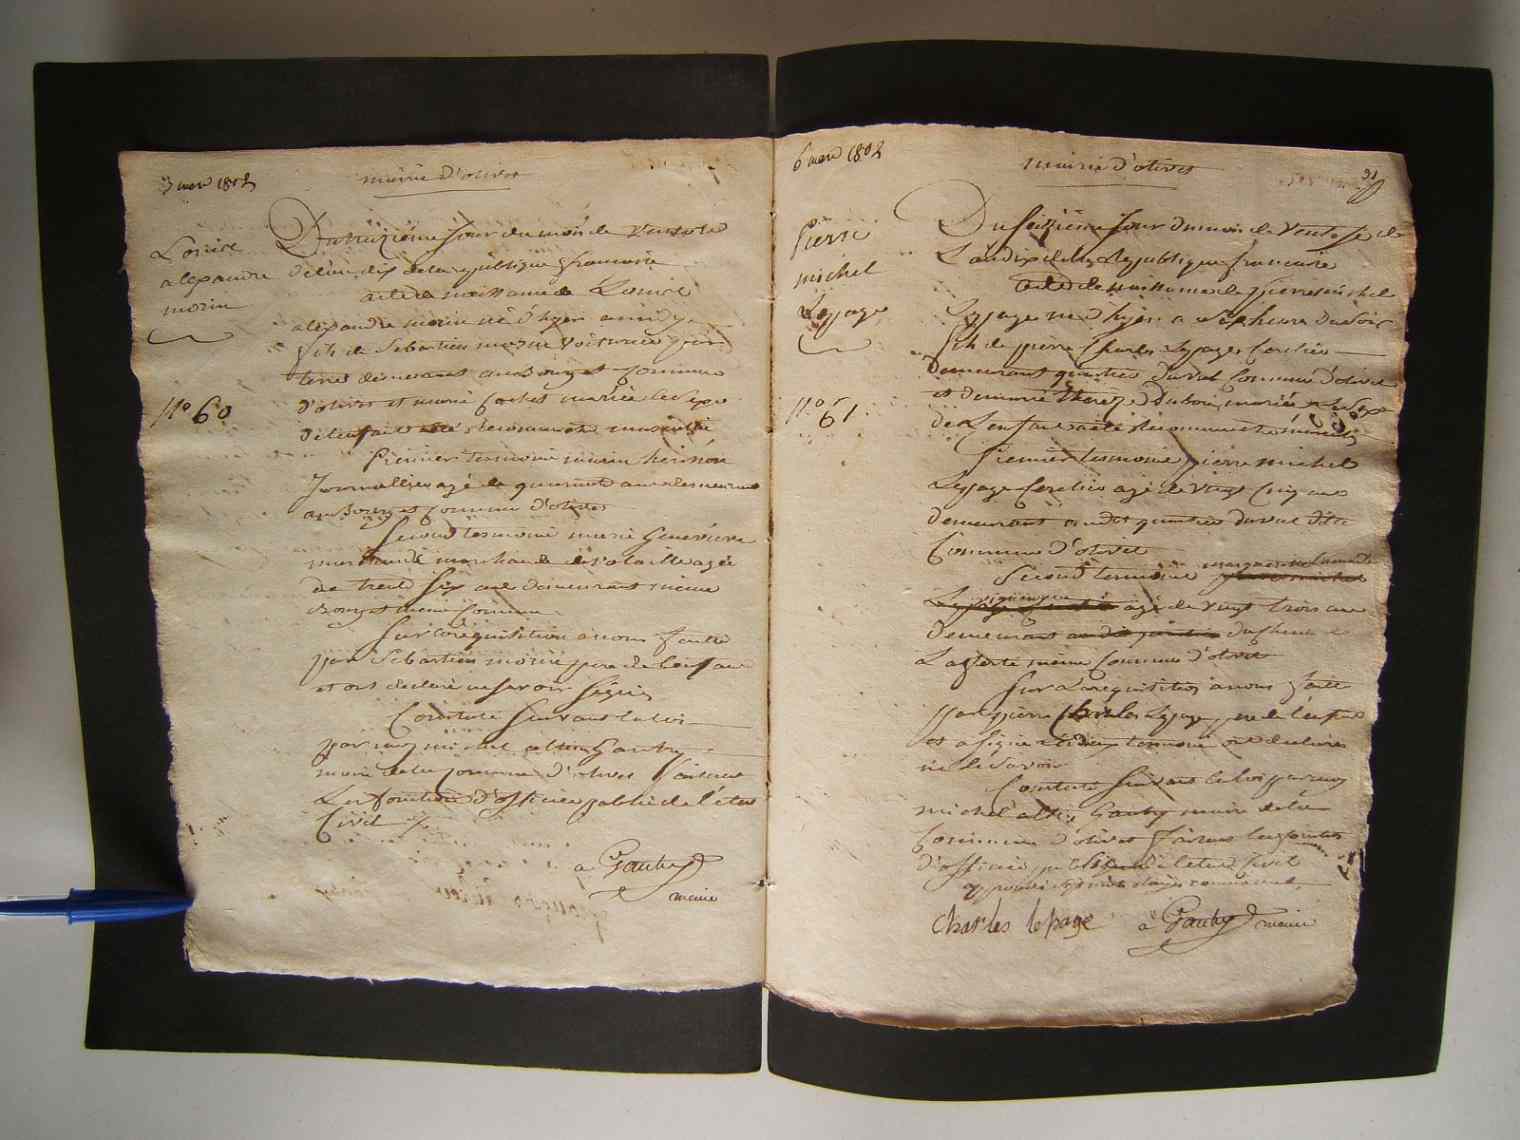 3 mars 1802
mairie d'olivet
Louise
alexandre
morin
N° 60
Du treizième jour du mois de ventose
de l'an dix de la république française
acte de naissance de Louise
alexandre morin né d'hyer a midy
fils de Sebastien morin voiturier par
terre demeurant au Bourg et commune
d'olivet et marie mariée le sexe
de l'enfant a été reconnu être masculin
Premier temoin
Journallier agé de quarante ans demeurant
au Bourg et commune d'olivet
Second temoin marie Genevieve
marchande de volaille agée
de trente six ans demeurant même
Bourg et même commune
Sur la requisition a nous faitte
par Sebastien morin pere de l'enfant
et ont declaré ne savoir signer
Constaté suivant la loi
par moy michel alexis Gauby
maire de la commune d'olivet faisant
Les fonctions d'officier public de l'état
Civil
a Gauby
maire
6 mars 1802
mairie d'olivet
91
Pierre
michel
Lepage
N° 61
Du seizième jour du mois de ventose de
L'an dix de la Republique française
acte de naissance de pierre michel
Lepage né d'hyer a sept heures du soir
fils de pierre Charles Lepage
demeurant quartier du val commune d'olivet
et de marie therese Dubois mariée le sexe
de L'enfant a été reconnu être masculin
Premier temoin pierre michel
Lepage agé de vingt cinq ans
demeurant au dit quartier du val dite
Commune d'olivet
Second temoin
agé de vingt trois ans
demeurant
La ferté même commune d'olivet
Sur La requisition a nous faitte
par pierre Charles Lepage pere de l'enfant
et a signé les deux temoins ont declaré
ne le savoir
Constaté suivant la loi par moy
michel alexis Gauby maire de la
Commune d'olivet faisant les fonctions
d'officier public de l'etat civil
Charles lepage a Gauby maire